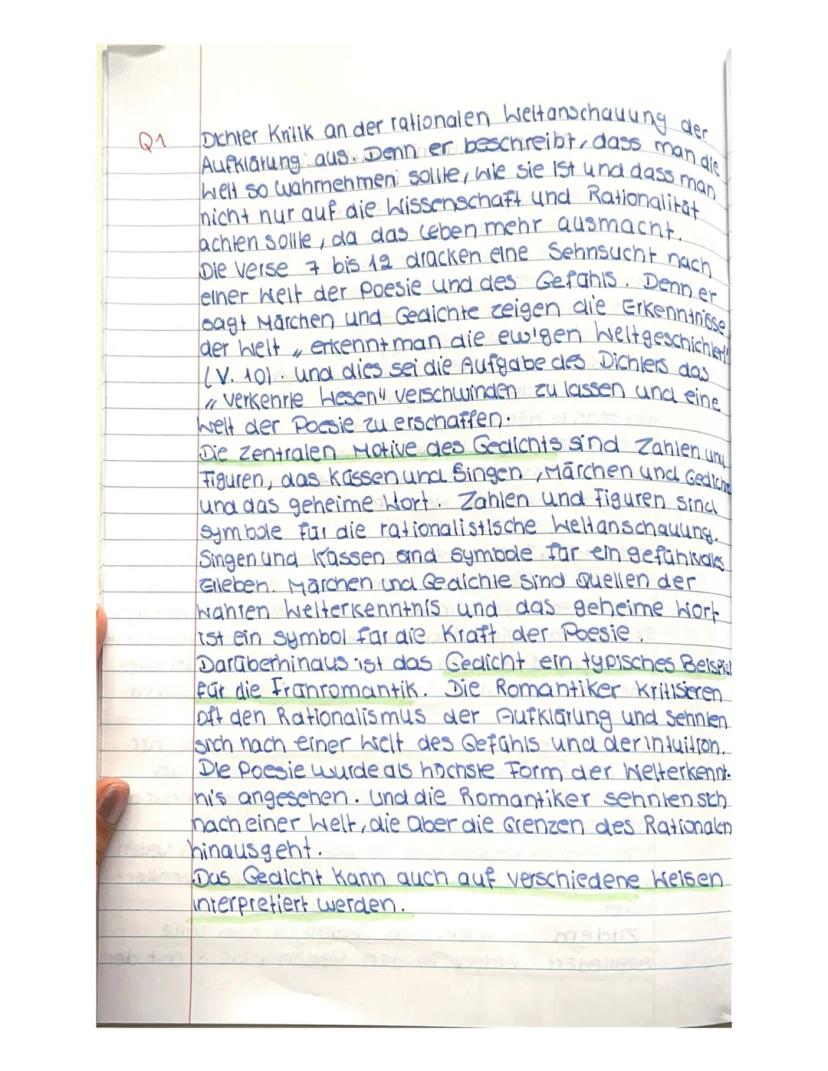 Q1
Dichter Kritik an der rationalen Weltanschauung der
Aufklärung aus. Denn er beschreibt, dass man die
Welt so wahrnehmen sollte, wie sie ist und dass man
nicht nur auf die Wissenschaft und Rationalität
achten sollte, da das Leben mehr ausmacht.
Die Verse 7 bis 12 drücken eine Sehnsucht nach
einer Welt der Poesie und des Gefühls. Denn er
sagt Märchen und Gedichte zeigen die Erkenntnisse
der Welt „erkennt man die ew'gen Weltgeschichten"
(V. 10). und dies sei die Aufgabe des Dichters das
„verkehrte Wesen" verschwinden zu lassen und eine
Welt der Poesie zu erschaffen.
Die zentralen Motive des Gedichts sind Zahlen und
Figuren, das Küssen und Singen, Märchen und Gedichte
und das geheime Wort. Zahlen und Figuren sind
Symbole für die rationalistische Weltanschauung.
Singen und Küssen sind Symbole für ein gefühlvolles
Erleben. Märchen und Gedichte sind Quellen der
wahren Welterkenntnis und das geheime Wort
ist ein Symbol für die Kraft der Poesie.
Darüberhinaus ist das Gedicht ein typisches Beispiel
für die Frühromantik. Die Romantiker kritisieren
oft den Rationalismus der Aufklärung und sehnten
sich nach einer Welt des Gefühls und der Intuition.
Die Poesie wurde als höchste Form der Welterkennt-
nis angesehen. Und die Romantiker sehnten sich
nach einer Welt, die über die Grenzen des Rationalen
hinausgeht.
Das Gedicht kann auch auf verschiedene Weisen
interpretiert werden.